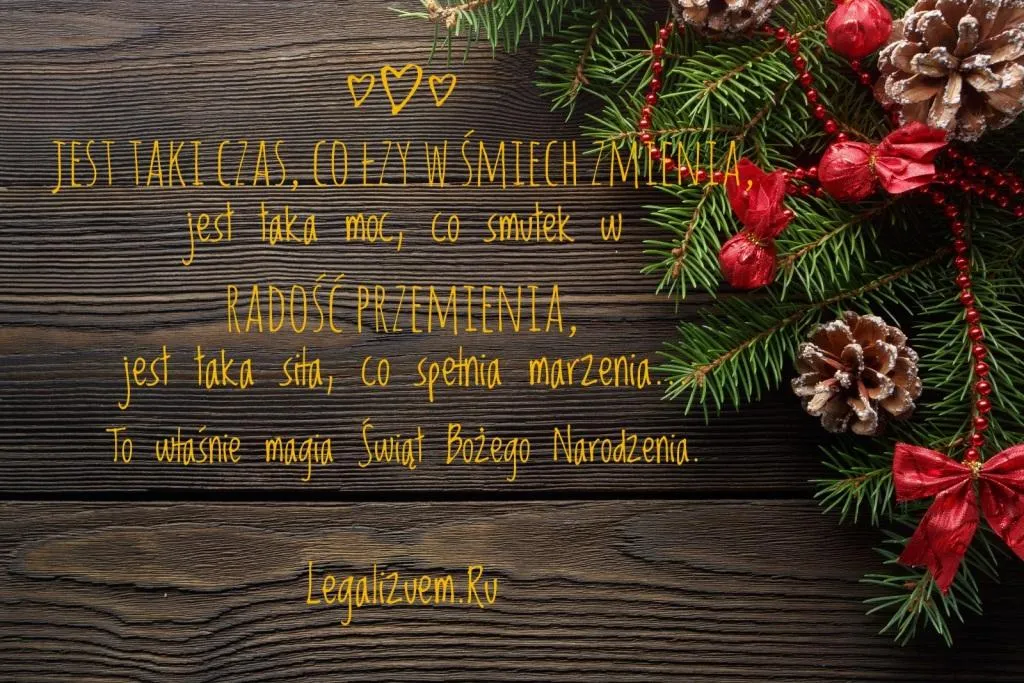 JEST TAKI CZAS, CO ŁZY W ŚMIECH ZMIENIA,
jest taka moc, co smutek w
RADOŚĆ PRZEMIENIA,
jest taka siła, co spełnia marzenia...
To właśnie magia Świąt Bożego Narodzenia.
Legalizuem.Ru